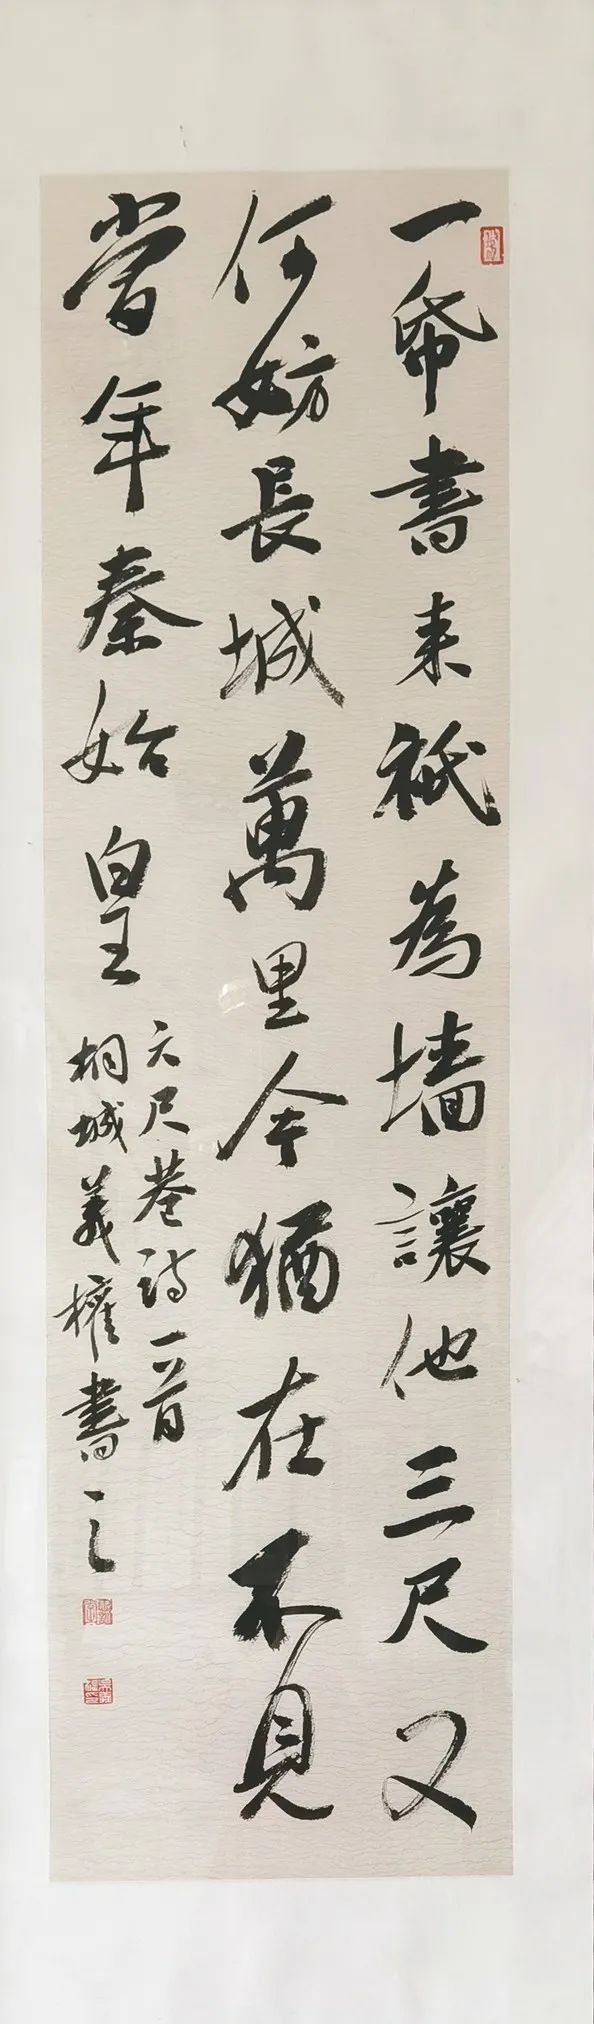 一帋書来祇為墙讓他三尺又
何妨長城萬里今猶在不見
當年秦始皇
六尺巷詩一首
桐城義權書之